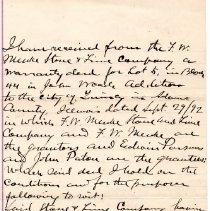 I have received from the F.W.
Menke Stone & Lime Company a
warranty deed for Lot 5, in Block
44 in John Woods Addition
to the City of Quincy in Adams
County, Illinois dated Sept 29/92
in which F.W. Menke Stone and Lime
Company and F.W. Menke are
the grantors and Edwin Parsons
and John Paton are the grantees
which said deed I hold on the
conditions and for the purposes
following to wit:
Said Stone & Lime Company having